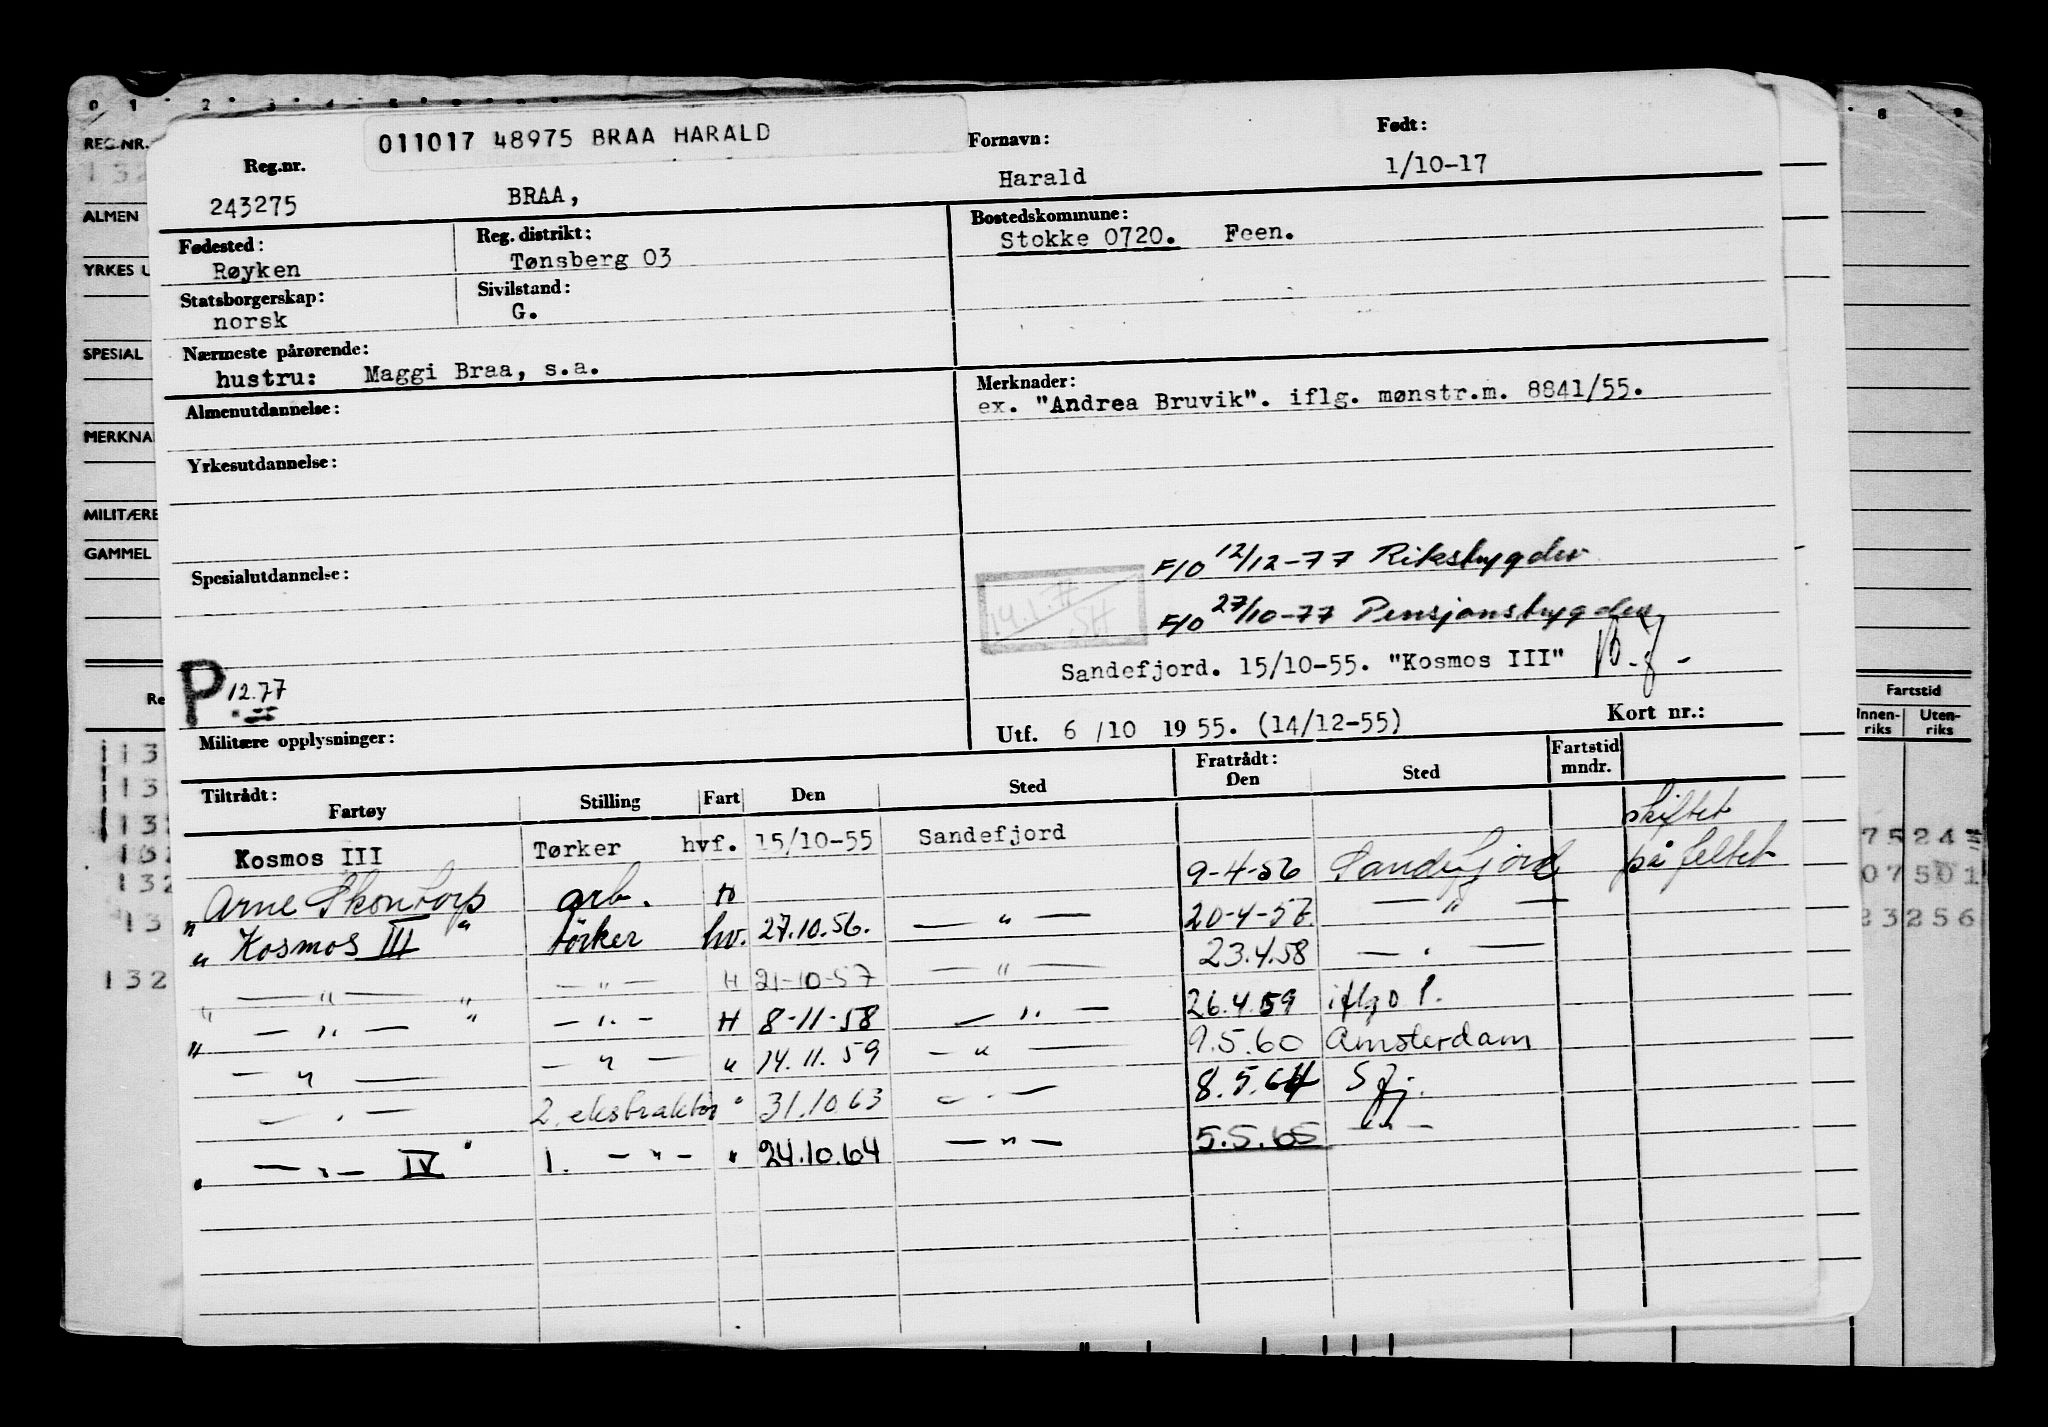 011017 48975 BRAA HARALD
Reg.nr. Fornavn: Født:
243275 BRAA, Harald 1/10-17
Fødested: Reg. distrikt: Bostedskommune:
Røyken Tønsberg 03 Stokke 0720. Feen.
Statsborgerskap: Sivilstand:
norsk G.
Nærmeste pårørende: Merknader:
hustru: Maggi Braa, s.a. ex. "Andrea Bruvik". iflg. mønstr.m. 8841/55.
Almenutdannelse:
Yrkesutdannelse:
Spesialutdannelse:
F/O 12/12-77 Rikstrygdev
F/O 27/10-77 Pensjonstrygden
Sandefjord. 15/10-55. "Kosmos III"
P 12.77
Utf. 6/10 1955. (14/12-55) Kort nr.:
Militære opplysninger:
Tiltrådt: Fratrådt: Fartstid mndr.
Fartøy Stilling Fart Den Sted Den Sted
Kosmos III Tørker hvf. 15/10-55 Sandefjord skiftet
" Arne Skontorp " arb. H 9-4-56 Sandefjord på feltet
" Kosmos III tørker hv. 27.10.56. — " — 20-4-57. — " —
" — " — " — " — H 21-10-57 — " — 23.4.58 — " —
" — " — " — " — H 8-11-58 — " — 26.4.59 iflg o l.
— " — — " — " 14.11.59 — " — 9.5.60 Amsterdam
— " — 2. ekstraktør " 31.10 63 — " — 8.5.64 Sfj.
" — " — IV " 1. — " — " 24.10.64 — " — 5.5.65 — " —
REG.NR.
ALMEN
YRKES U
SPESIAL
MERKNA
MILITÆRE
GAMMEL
Fartstid
Innen-riks Uten-riks